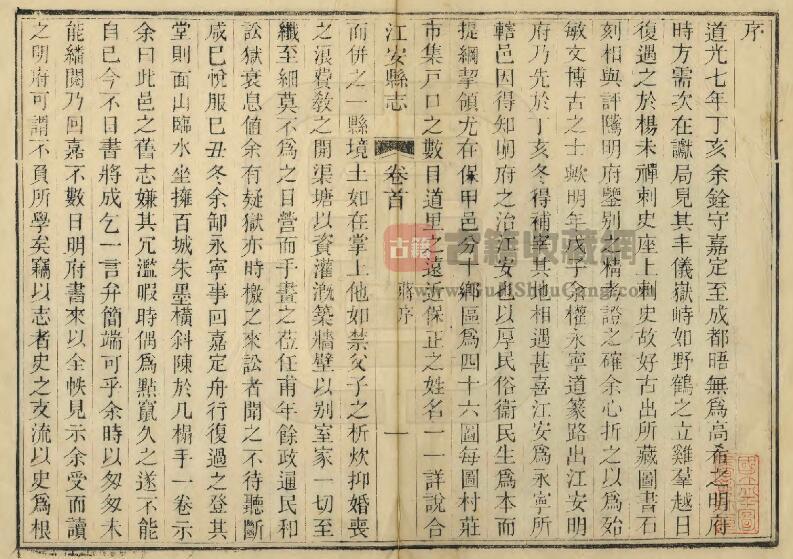 序
道光七年丁亥余銓守嘉定至成都晤無爲高希之明府
時方需次在讞局見其丰儀嶽峙如野鶴之立雞羣越日
復遇之於楊未禪刺史座上刺史故好古出所藏圖書石
刻相與評隲明府鑒別之精考證之確余心折之以爲殆
敏文博古之士歟明年戊子余權永寧道篆路出江安明
府乃先於丁亥冬得補宰其地相遇甚喜江安爲永寧所
轄邑因得知明府之治江安也以厚民俗衛民生爲本而
提綱挈領尤在保甲邑分十鄉區爲四十六圖每圖村莊
市集戸口之數目道里之遠近保正之姓名一一詳說合
江安縣志
卷首
蔣序
一
而併之一縣境土如在掌上他如禁父子之析炊抑婚喪
之浪費敎之開渠塘以資灌漑築牆壁以別室家一切至
纖至細莫不爲之日營而手畫之莅任甫年餘政通民和
訟獄衰息値余有疑獄亦時檄之來訟者聞之不待聽斷
咸已悅服巳丑冬余卸永寧事回嘉定舟行復過之登其
堂則面山臨水坐擁百城朱墨橫斜陳於几榻手一卷示
余曰此邑之舊志嫌其冗濫暇時偶爲點竄久之遂不能
自已今不日書將成乞一言弁簡端可乎余時以匆匆未
能繙閱乃回嘉不數日明府書來以全帙見示余受而讀
之明府可謂不負所學矣竊以志者史之支流以史爲根
古籍
古籍收藏網
www.GuJiShuCang.com